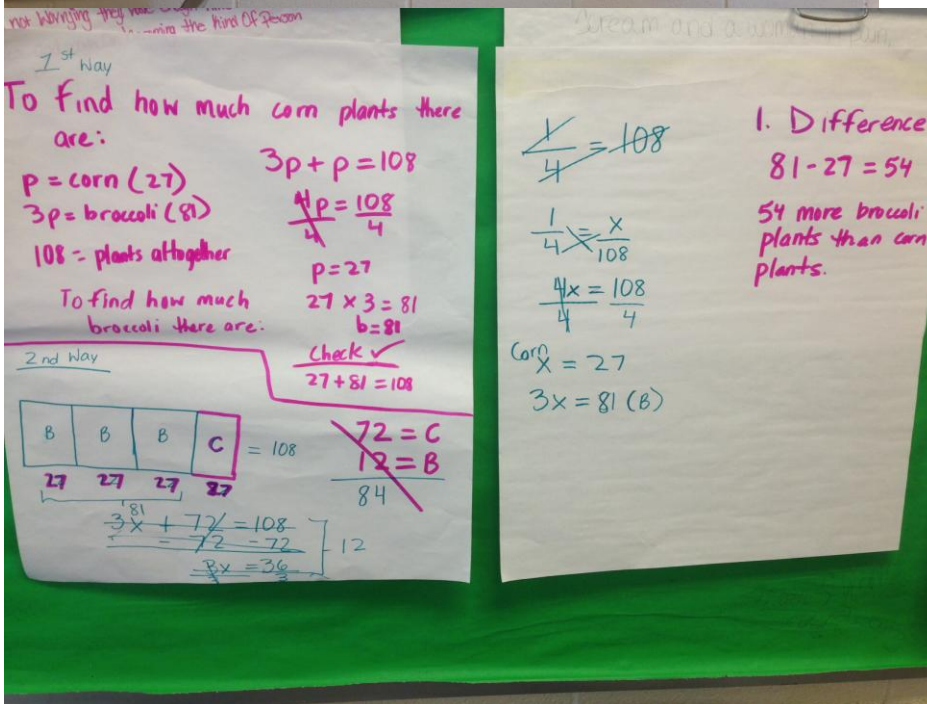 not worrying they
the kind of person
1st Way
To find how much corn plants there
are:
p = corn (27)
3p = broccoli (81)
108 = plants alltogether
3p + p = 108
4p = 108
4 4
p = 27
To find how much
broccoli there are:
27 x 3 = 81
b = 81
Check ✓
27 + 81 = 108
2nd Way
B B B C = 108
27 27 27 27
81
3x + 72 = 108
- 72 - 72
3x = 36
3 3
12
72 = C
12 = B
84
and a woman in
1 = 108
4
1 = x
4 108
4x = 108
4 4
Corn x = 27
3x = 81 (B)
1. Difference
81 - 27 = 54
54 more broccoli
plants than corn
plants.